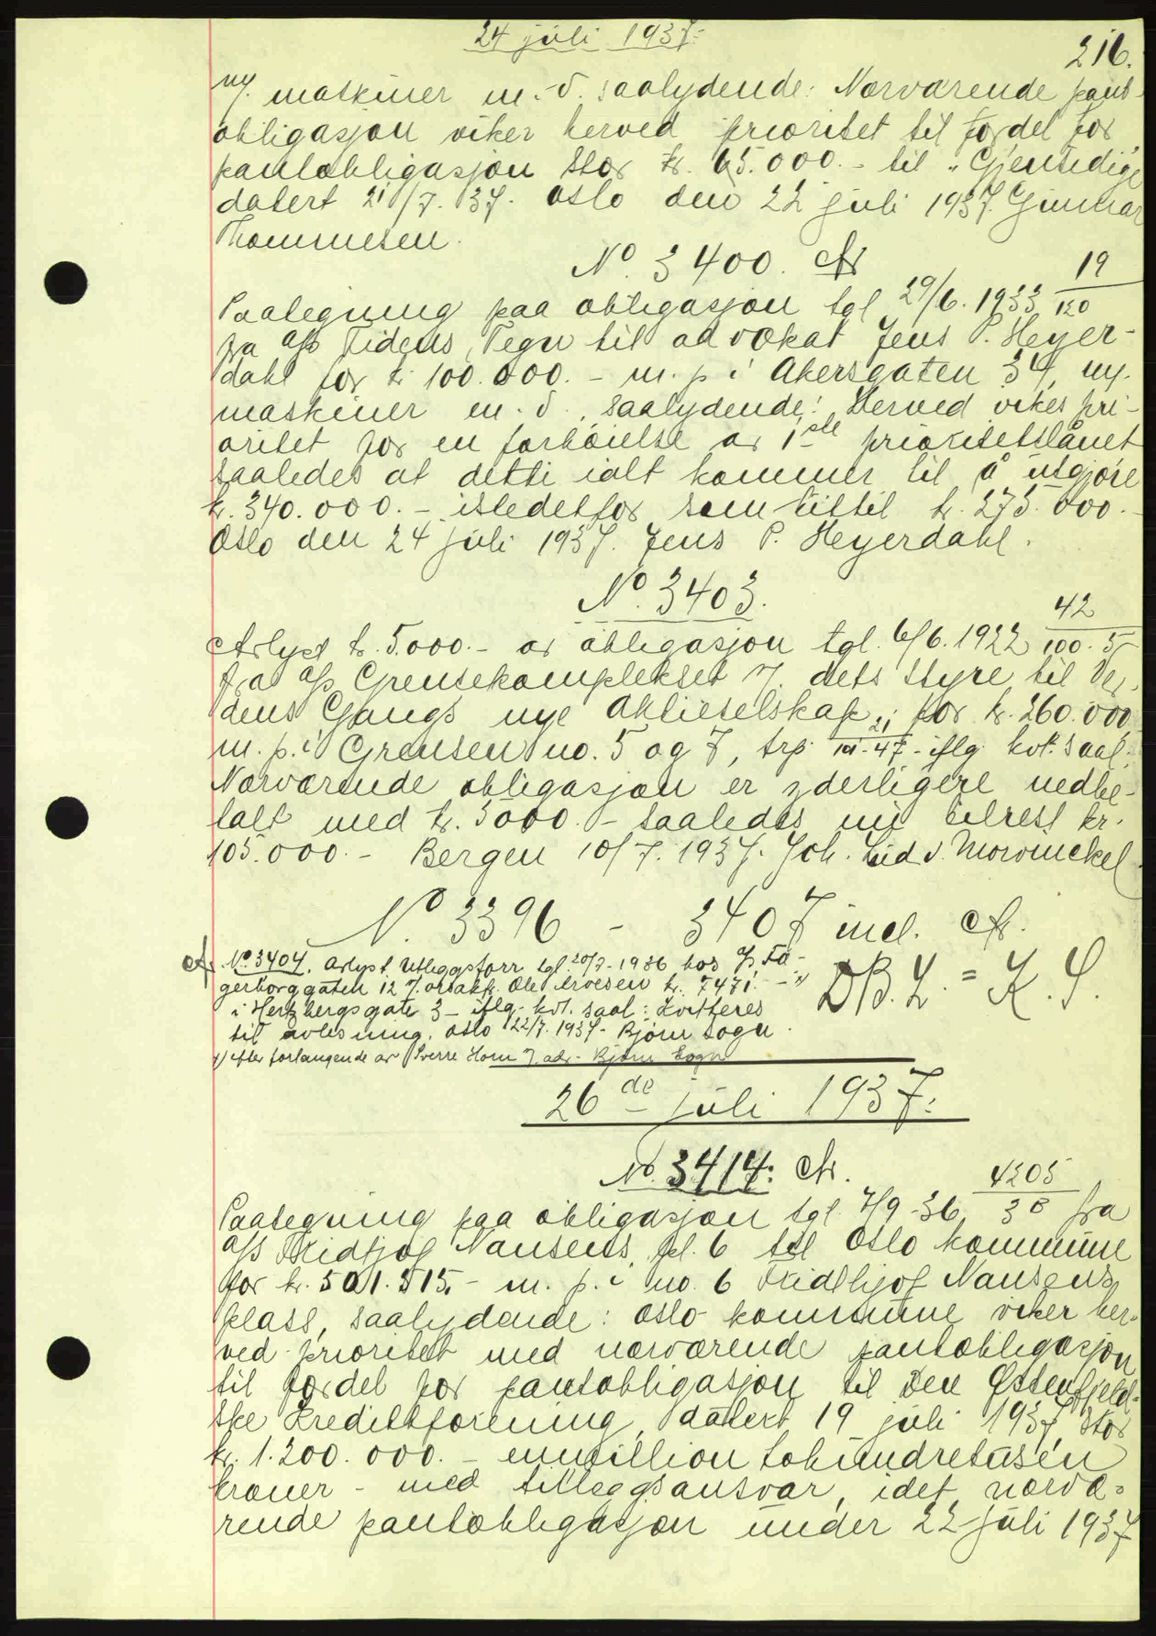 24 juli 1937:
216.
ny. maskiner m. v. saalydende: Nærværende pant-
obligasjon viker herved prioritet til fordel for
pantobligasjon stor kr. 65.000.- til "Gjensidige
datert 21/7. 37. Oslo den 22 juli 1937. Gunnar
Thommesen.
No. 3400. At
Paategning paa obligasjon tgl. 29/6. 1933 19/120
fra A/S Tidens Tegn til advokat Jens P. Heyer-
dahl for kr. 100.000.- m. p. i Akersgaten 34, ny.
maskiner m. v., saalydende: Herved vikes pri-
oritet for en forhøielse av 1ste prioritetslånet
saaledes at dette ialt kommer til å utgjøre
kr. 340.000.- istedetfor som hittil kr. 275.000.-
Oslo den 24 juli 1937. Jens P. Heyerdahl.
No. 3403.
Avlyst kr. 5.000.- av obligasjon tgl. 6/6. 1922 42/100.5
fra A/S Grensekomplekset v. dets styre til Ver-
dens Gangs nye Aktieselskap, for kr. 260.000
m. p. i Grensen no. 5 og 7, trp. 21/101-47- iflg. kvt. saal.
Nærværende obligasjon er yderligere nedbe-
talt med kr. 5000.- saaledes nu tilrest kr.
105.000.- Bergen 10/7. 1937. Joh. Ludv. Mowinckel
No. 3396 - 3407 incl. At.
At. No. 3404. Avlyst Utleggsforr. tgl. 20/7-1936 hos
gerborggaten 12 Ole kr. 7471.-
i Hertzbergsgate 3- iflg. kvt. saal: Kvitteres
til avlesning. Oslo 22/7. 1937- Bjørn Sogn.
DB.L. = K.S.
x) efter forlangende av Sverre Horn adr. Bjørn Sogn
26de juli 1937:
No. 3414: At.
Paategning paa obligasjon tgl. 7/9-36, 4205/38 fra
A/S Fridtjof Nansens pl. 6 til Oslo kommune
for kr. 501.515.- m. p. i no. 6 Fridthjof Nansens
plass, saalydende: Oslo kommune viker her-
ved prioritet med nærværende pantobligasjon
til fordel for pantobligasjon til Den Østenfjeld-
ske Kreditforening, datert 19 juli 1937, stor
kr. 1.200.000.- enmillion tohundretusen
kroner - med tilleggsansvar, idet nærvæ-
rende pantobligasjon under 22 juli 1937